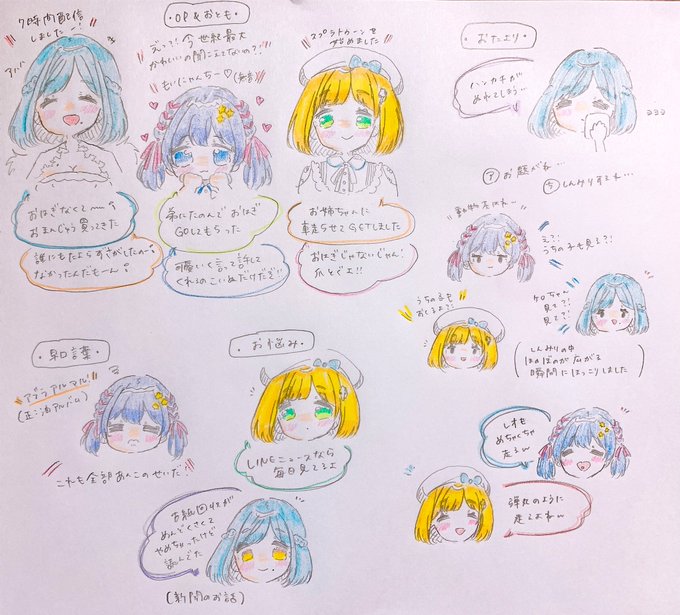 7時間配信
しました!
アバ
おはぎなくて〜〜
おまんじゅう買ってきた
誰にもたよらずさがしたの〜
なかったんだもーん!
・OP&おとも・
えっ?!今世紀最大
かわいいの聞こえてないの?!
もいにゃんちー♡(無言)
弟にたのんでおはぎ
GOしてもらった
可愛いく言って許して
くれるのこいぬだけだぞ!!
スプラトゥーンを
始めました
お姉ちゃんに
車走らせてGETしました
おはぎじゃないじゃん!
爪とぐよ!!
おたより
ハンカチが
ぬれてしまう…
ア お題がね…
ち しんみりするね…
動物ネタね…
え?!
うちの子も見る?!
うちの子も
おくるよ?!
ケロちゃん
見て?!
見て?!
しんみりの中
ほのぼのが広がる
瞬間にほっこりしました
レオも
めちゃくちゃ
走るw
弾丸のように
走るよねw
・和言葉・
アブラアルマル!
(正:油アルバム)
これも全部あんこのせいだ!
・お悩み・
LINEニュースなら
毎日見てるよ
お紙回収が
めんどくさくて
やめちゃったけど
読んでた
(新聞のお話)